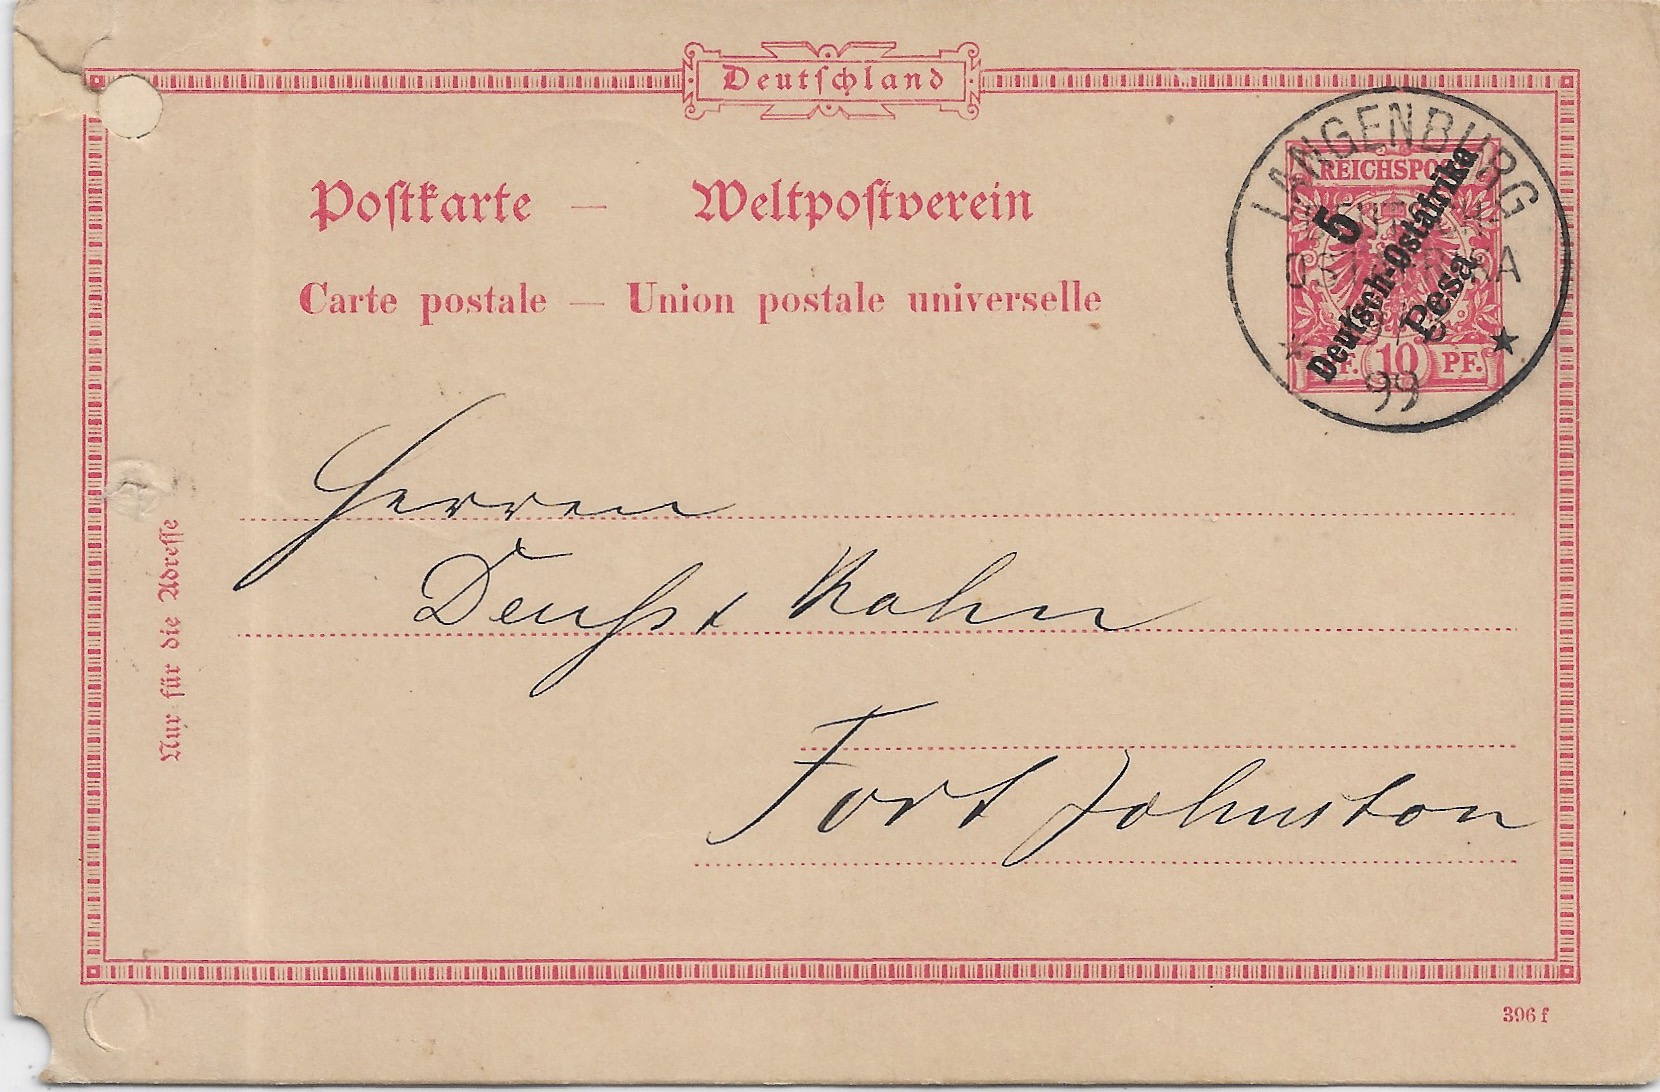 Deutschland
Postkarte — Weltpostverein
Carte postale — Union postale universelle
LANGENBURG
REICHSPO
5
Deutsch-Ostafrika
Pesa
10 PF.
99
Herren
Deuss & Kahn
Fort Johnston
Nur für die Adresse
396 f